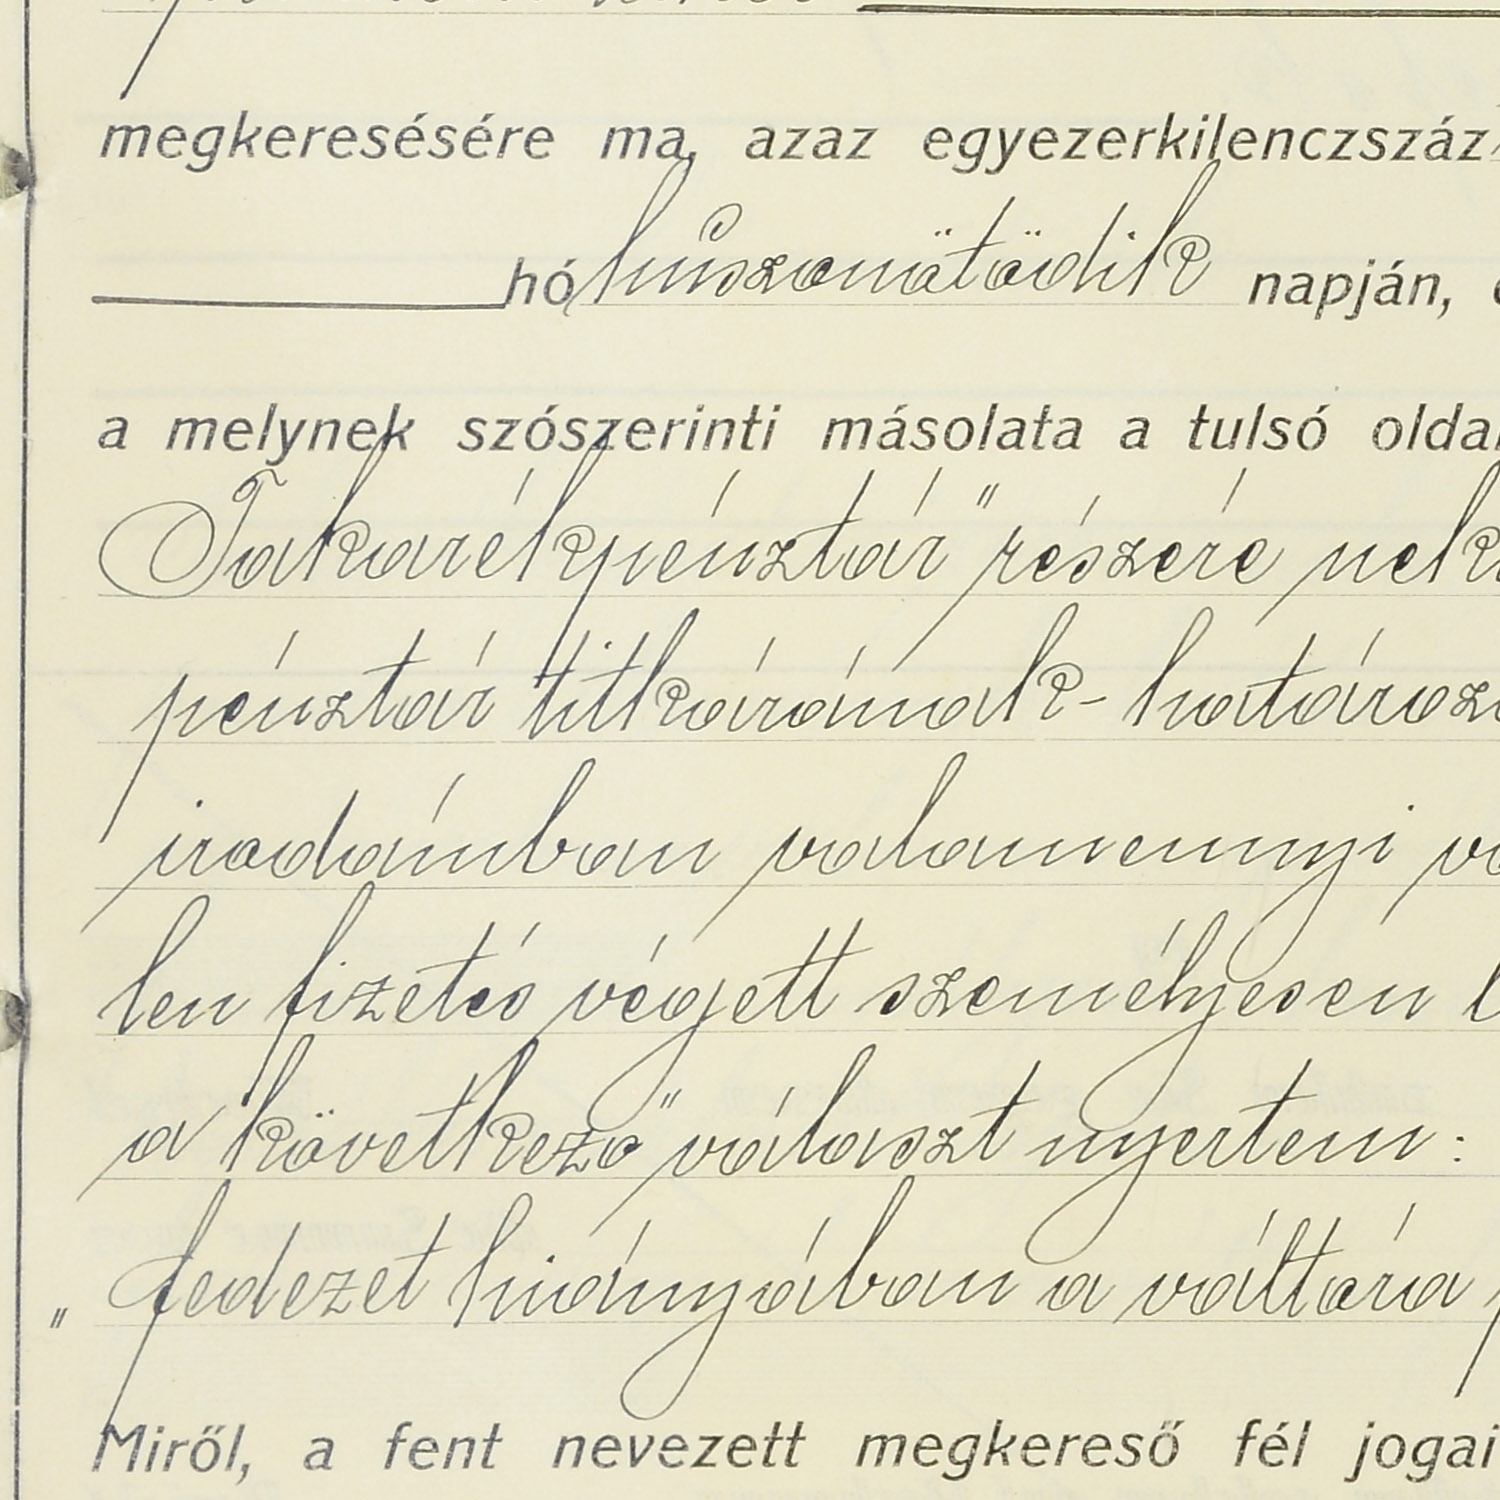 megkeresésére ma, azaz egyezerkilenczszáz
hó huszonötödik napján,
a melynek szószerinti másolata a tulsó oldal
Takarékpénztár" részére
pénztár titkárának - határoz
irodámban valamennyi
len fizetés végett személyesen
a következő választ nyertem:
„fedezet hiányában a váltóra
Miről, a fent nevezett megkereső fél jogai